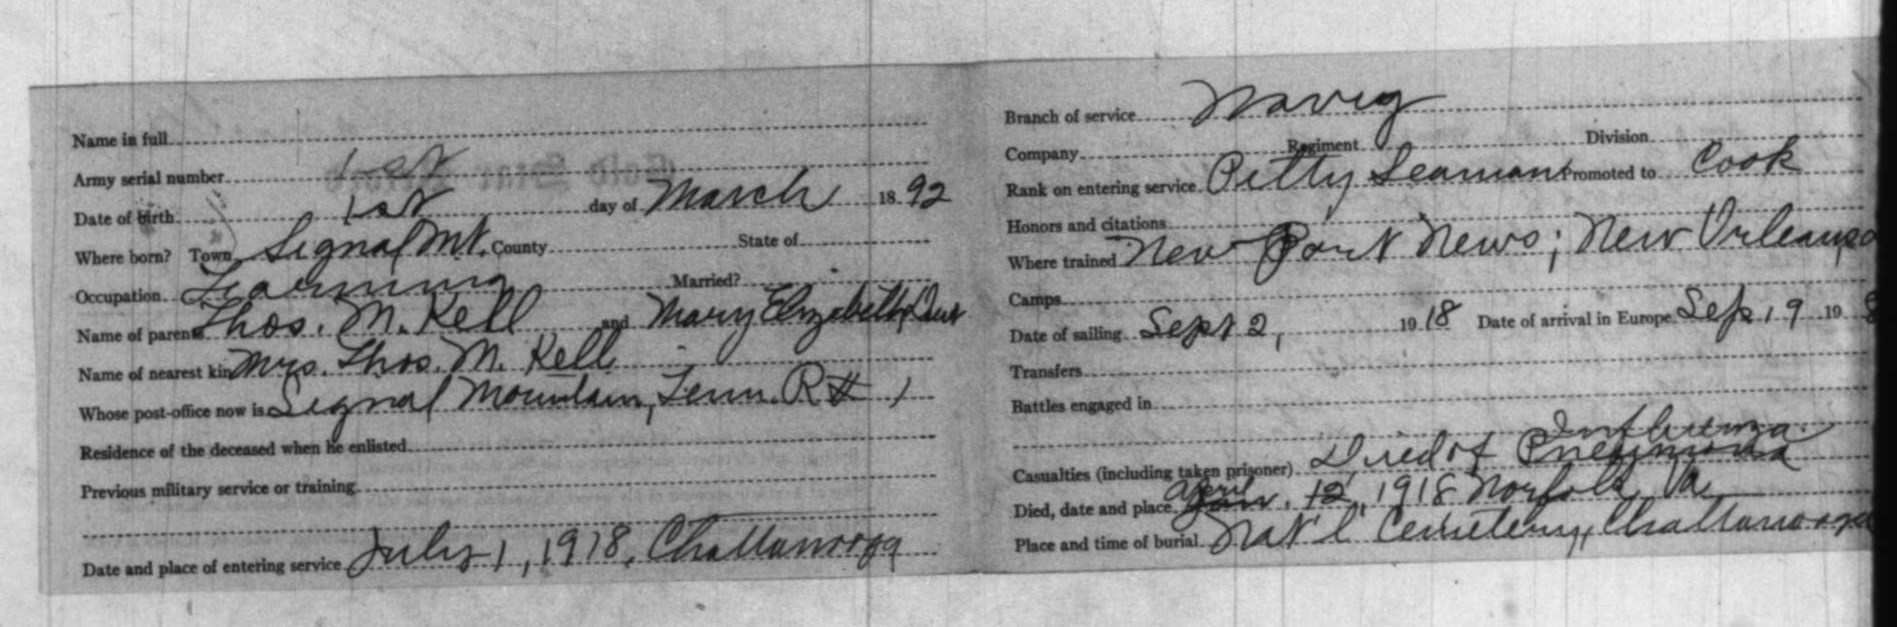 Name in full
Army serial number 1st
Date of birth 1st day of March 1892
Where born? Town Signal Mt. County State of
Occupation Farming Married?
Name of parents Thos. M. Kell and Mary Elizabeth
Name of nearest kin Mrs. Thos. M. Kell
Whose post-office now is Signal Mountain, Tenn. R # 1
Residence of the deceased when he enlisted
Previous military service or training
Date and place of entering service July 1, 1918, Chattanooga
Branch of service Navy
Company Regiment Division
Rank on entering service Petty Seaman Promoted to Cook
Honors and citations
Where trained New Port News; New Orleans
Camps
Date of sailing Sept 2, 1918 Date of arrival in Europe Sep. 19 19 8
Transfers
Battles engaged in
Influenza
Casualties (including taken prisoner) Died of Pneumonia
April
Died, date and place Jan. 12, 1918 Norfolk, Va
Place and time of burial Nat'l Cemetery, Chattanooga